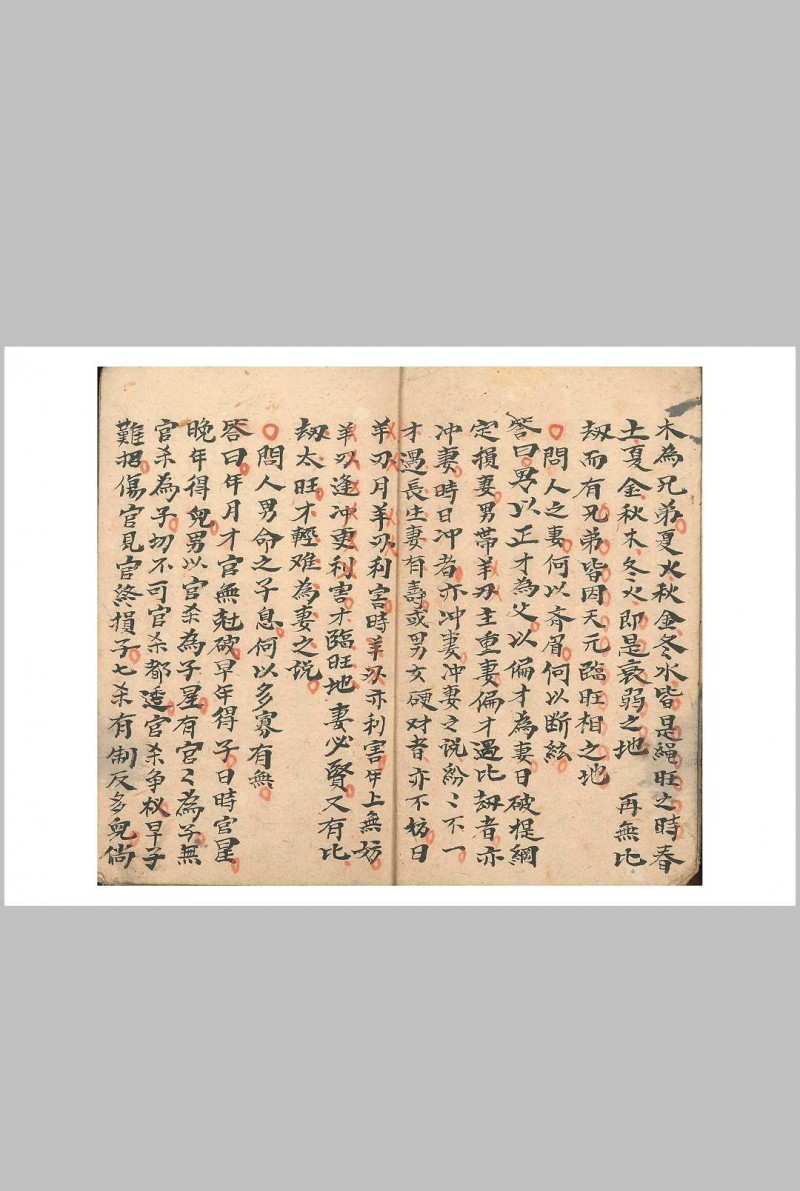 木為兄弟夏火秋金冬水皆是绳旺之時春
土夏金秋木冬火即是衰弱之地　再無比
刼而有兄弟皆因天元臨旺相之地
問人之妻何以斉眉何以断絃
答曰男以正才為父以偏才為妻日破提綱
定損妻男帶羊刃主重妻偏才遇比刼者亦
冲妻時日冲者亦冲妻冲妻之说紛〻不一
才遇長生妻有壽或男女硬对者亦不妨日
羊刃月羊刃利害時羊刃亦利害年上無妨
羊刃逢冲更利害才臨旺地妻必賢又有比
刼太旺才輕难為妻之说
問人男命之子息何以多寡有無
答曰年月才官無尅破早年得子日時官星
晚年得兒男以官杀為子星有官〻為子無
官杀為子切不可官杀都透官杀争权早子
難招傷官見官終損子七杀有制反多兒倘